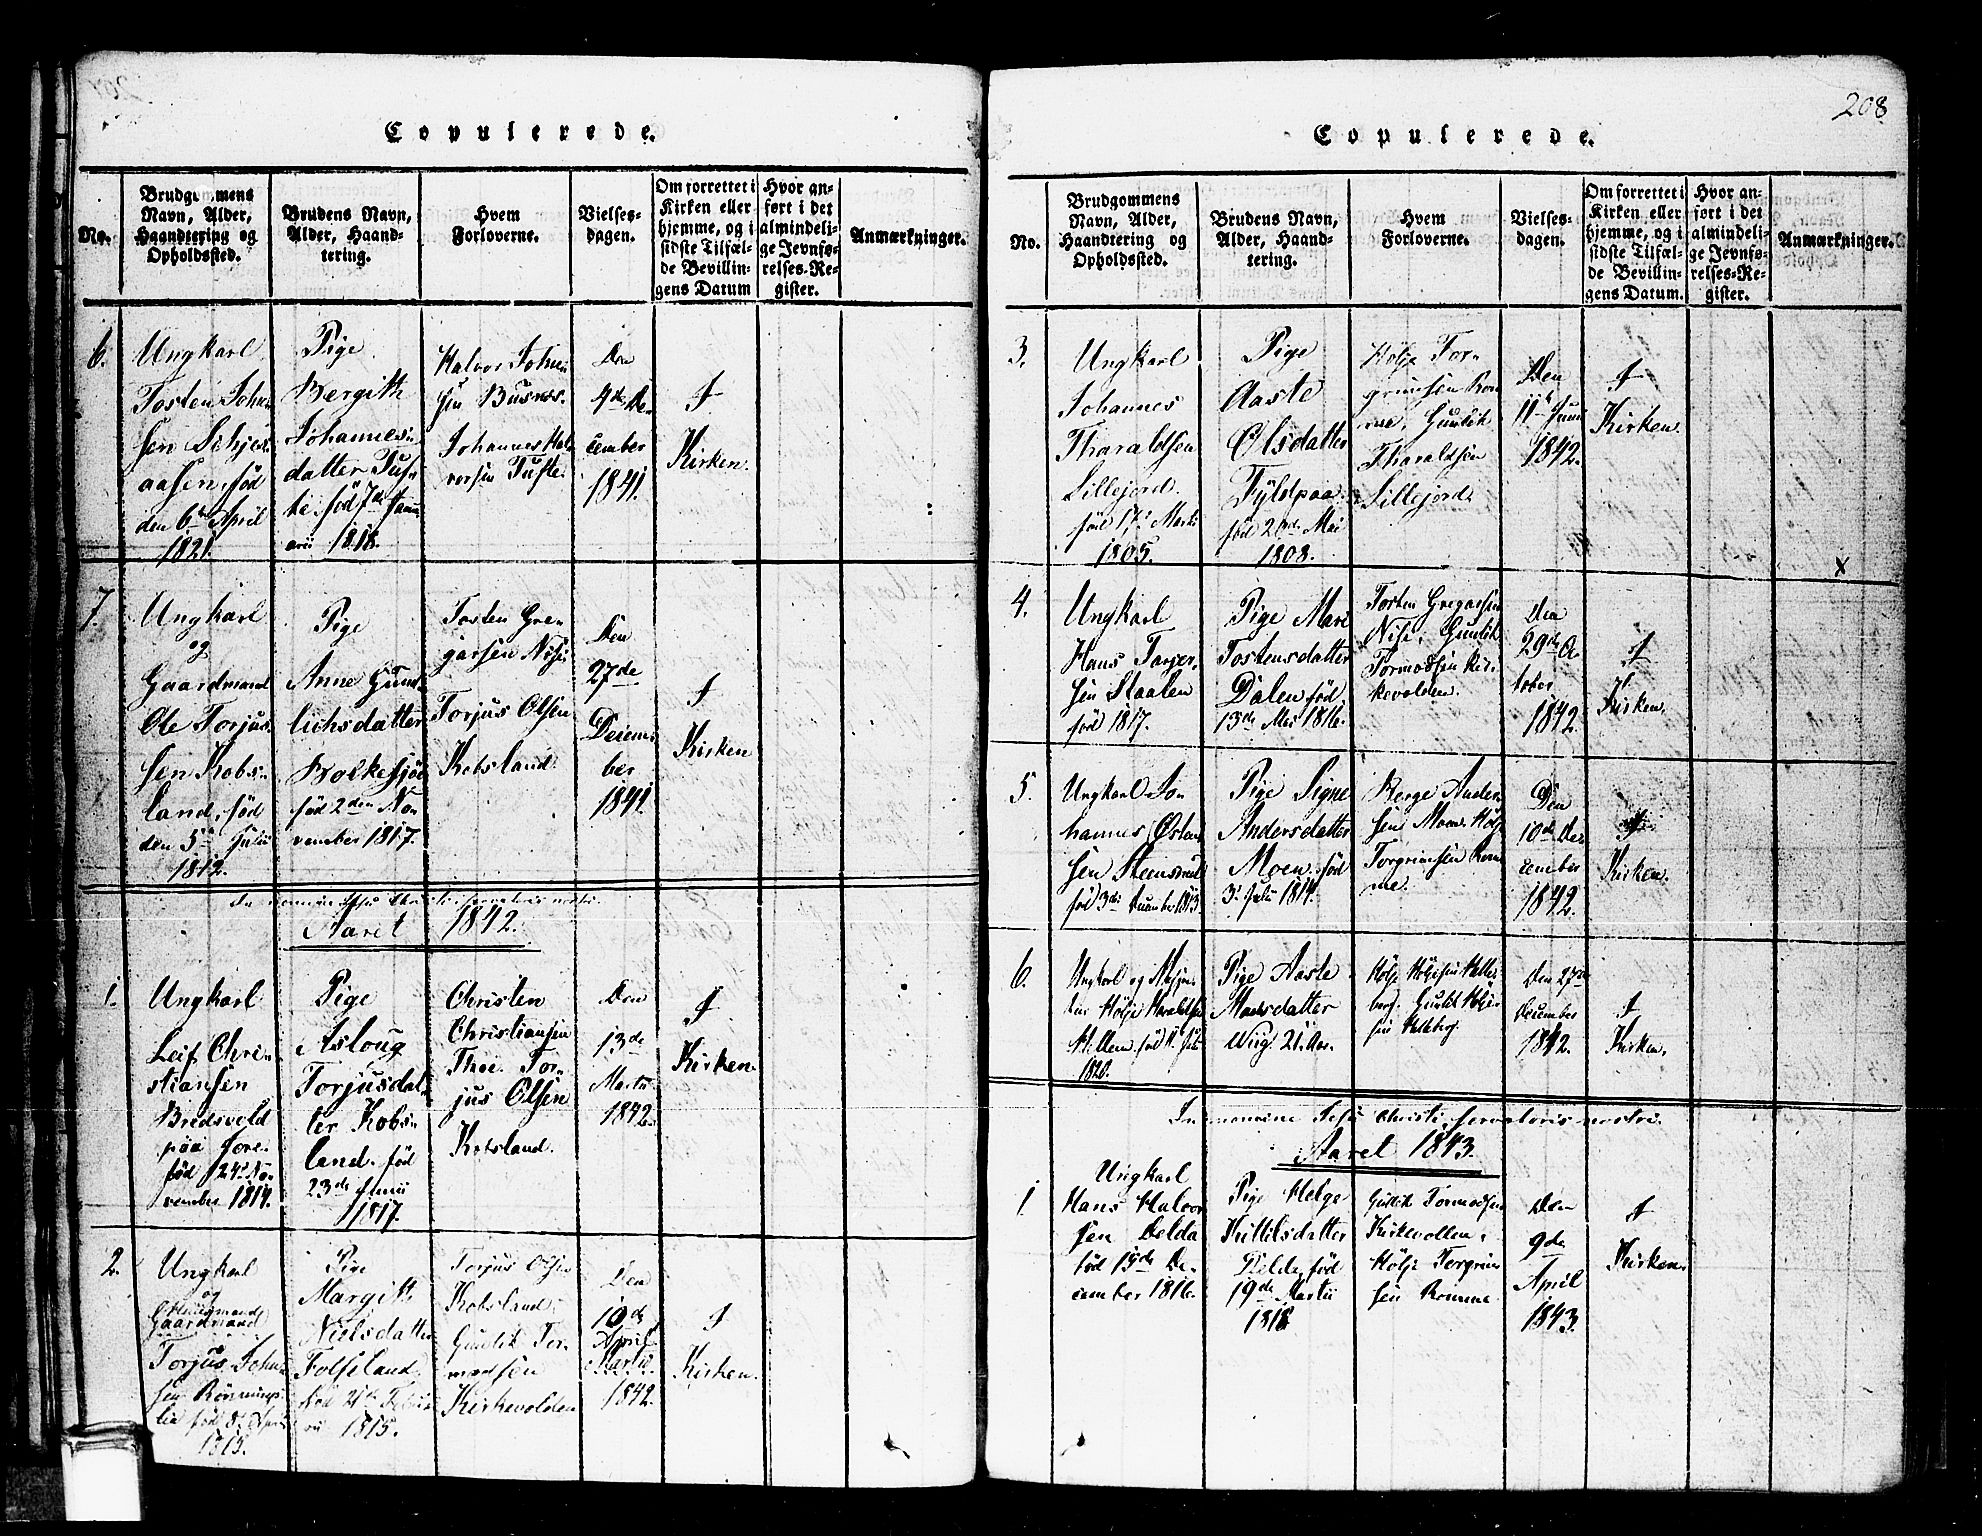 Copulerede.
No.
Brudgommens
Navn, Alder,
Haandtering og
Opholdssted.
Brudens Navn,
Alder, Haand-
tering.
Hvem
Forloverne.
Vielses-
dagen.
Om forrettet i
Kirken eller
hjemme, og i
sidste Tilfæl-
de Bevillin-
gens Datum
Hvor an-
ført i det
almindeli-
ge Jevnfø-
relses-Re-
gister.
Anmærkninger.
6.
Ungkarl
Tosten Johan-
sen
aasen, fød
den 6te April
1821.
Pige
Bergith
Johannes-
datter Tuf-
te, fød 7de Janu-
arii 1818.
Halvor Johan-
sen Busnes.
Johannes Hal-
vorsen Tufte.
Den
4de De-
cember
1841.
I
Kirken.
7.
Ungkarl
og
Gaardmand
Ole Torjus-
sen Kobs-
land, fød
den 5te Julii
1812.
Pige
Anne Gun-
lichsdatter
Bolkesjøe
fød 2den No-
vember 1817.
Tosten Gre-
garsen Nisi
Torjus Olsen
Kobsland.
Den
27de
Decem-
ber
1841.
I
Kirken
In nomine Jesu Christi servatoris nostri.
Aaret 1842.
1.
Ungkarl
Leif Chri-
stiansen
Bredsvold
paa Gore
fød 24de No-
vember 1814.
Pige
Asloug
Torjusdat-
ter Kobs-
land. fød
23de Junii
1817.
Christen
Christiansen
Thoe. Tor-
jus Olsen
Kobsland.
Den
13de
Martii
1842.
I
Kirken.
2.
Ungkarl
og
Gaardmand
Torjus Johan-
sen Rønnings-
lia fød 8de April
1813.
Pige
Margith
Nielsdatter
Folseland
fød 21de Febru-
rii 1815.
Torjus Olsen
Kobsland.
Gunlik Tor-
modsen
Kirkevolden
Den
10de
April
Martii
1842.
I
Kirken.
208.
Copulerede.
No.
Brudgommens
Navn, Alder,
Haandtering og
Opholdssted.
Brudens Navn,
Alder, Haand-
tering.
Hvem
Forloverne.
Vielses-
dagen.
Om forrettet i
Kirken eller
hjemme, og i
sidste Tilfæl-
de Bevillin-
gens Datum.
Hvor an-
ført i det
almindeli-
ge Jevnfø-
relses-Re-
gister.
Anmærkninger.
3.
Ungkarl
Johannes
Tharaldsen
Lillejord.
fød 17de Martii
1805.
Pige
Aaste
Olsdatter
Fyldpaa.
fød 2den Mai
1808.
Hølje Tor-
grimsen Rom-
me, Gunlik
Tharaldsen
Lillejord.
Den
11te Juni
1842.
I
Kirken.
x
4.
Ungkarl
Hans Torger-
sen Staalen
fød 1817.
Pige Mari
Tostensdatter
Dalen fød
13de Mai 1816.
Tosten Gregarsen
Nisi, Gunlik
Tormodsen Kir-
kevolden.
Den
29de Oc-
tober
1842
I
Kirken.
5.
Ungkarl Jo-
hannes Østen-
sen Steensrud
fød 3die December 1813
Pige Signe
Andersdatter
Moen. fød
3die Julii 1814.
Berge Ander-
sen Moen. Hølje
Torgrimsen Rom-
me.
Den
10de De-
cember
1842.
I
Kirken.
6.
Ungkarl og
Hølje Haraldsen
fød
1820.
Pige Aaste
Madsdatter
Wiig 21 Aar.
Hølje Høljesen Helle-
berg. Gunlik Hølje-
sen Helleberg.
Den 27de
December
1842.
I
Kirken.
In nomine Jesu Christi servatoris nostri.
Aaret 1843.
1.
Ungkarl
Hans Halvor-
sen Bolda
fød 19de De-
cember 1816.
Pige Helge
Kittilsdatter
fød
19de Martii
1818
Gunlik Tormodsen
Kirkevollen.
Hølje Torgrim-
sen Romme.
Den
9de
April
1843.
I
Kirken.